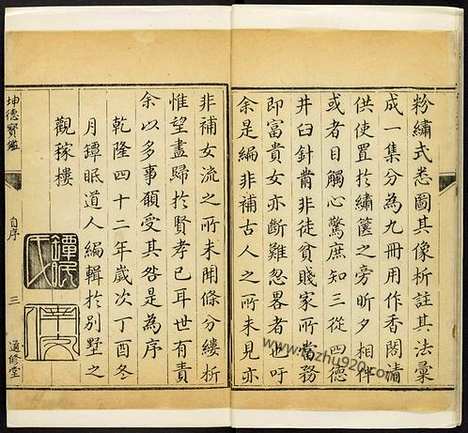 粉繡式悉圖其像析註其法彙
成一集分為九冊用作香閣清
供使置於繡篋之旁昕夕相伴
或者目觸心驚庶知三從四德
井臼針黹非徒貧賤家所當務
即富貴女亦斷難忽畧者也吁
余是編非補古人之所未見亦
非補女流之所未聞條分縷析
惟望盡歸於賢孝已耳世有責
余以多事願受其咎是為序
乾隆四十二年歲次丁酉冬
月鐔岷道人編輯於別墅之
觀稼樓
坤德寶鑑
自序
三
通修堂